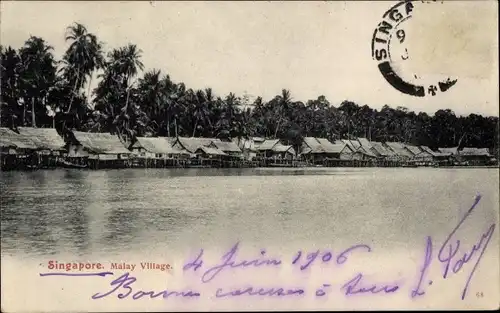 SINGA
Singapore. Malay Village.
4 Juin 1906
Bonnes caresses à tous
68